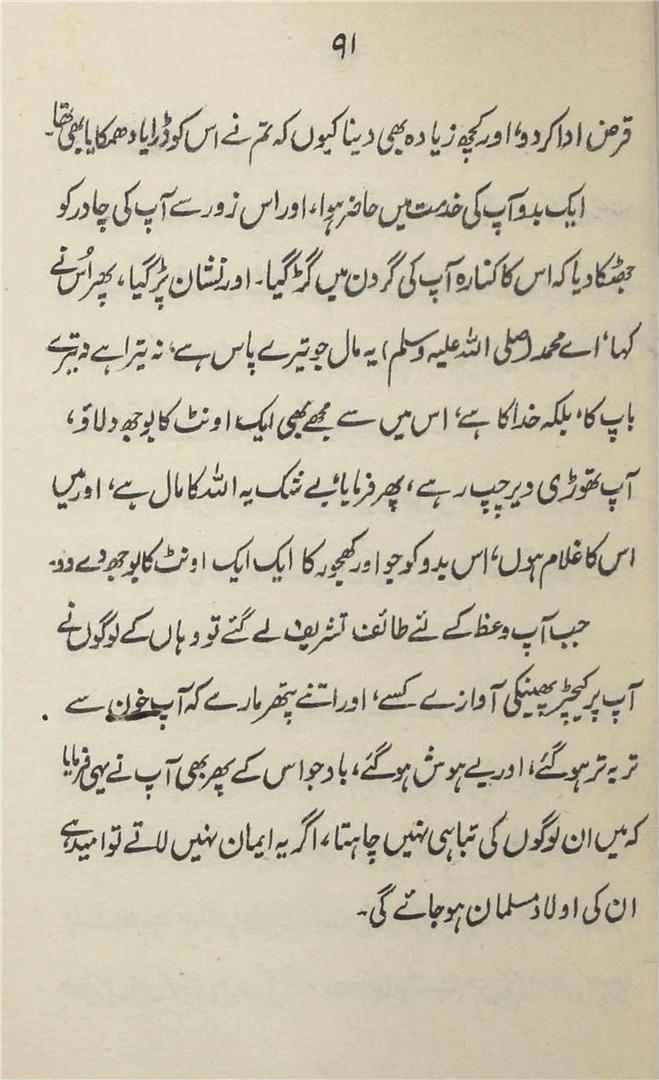 ۹۱
قرض ادا کر دو، اور کچھ زیادہ بھی دینا کیوں کہ تم نے اس کو ڈرایا دھمکایا بھی تھا۔
ایک بدو آپ کی خدمت میں حاضر ہوا، اور اس زور سے آپ کی چادر کو
جھٹکا دیا کہ اس کا کنارہ آپ کی گردن میں گڑ گیا۔ اور نشان پڑ گیا، پھر اُس نے
کہا، اے محمد (صلی اللہ علیہ وسلم) یہ مال جو تیرے پاس ہے، نہ تیرا ہے نہ تیرے
باپ کا، بلکہ خدا کا ہے، اس میں سے مجھے بھی ایک اونٹ کا بوجھ دلاؤ،
آپ تھوڑی دیر چپ رہے، پھر فرمایا، بے شک یہ اللہ کا مال ہے، اور میں
اس کا غلام ہوں، اس بدو کو جو اور کھجور کا ایک ایک اونٹ کا بوجھ دے دو۔
جب آپ وعظ کے لئے طائف تشریف لے گئے تو وہاں کے لوگوں نے
آپ پر کیچڑ پھینکی آوازے کسے، اور اتنے پتھر مارے کہ آپ خون سے
تر بہ تر ہو گئے، اور بے ہوش ہو گئے، باوجو اس کے پھر بھی آپ نے یہی فرمایا
کہ میں ان لوگوں کی تباہی نہیں چاہتا، اگر یہ ایمان نہیں لاتے تو امید ہے
ان کی اولاد مسلمان ہو جائے گی۔